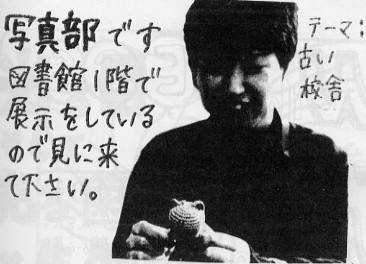 写真部です
図書館1階で
展示をしている
ので見に来
て下さい。
テーマ:
古い
校舎